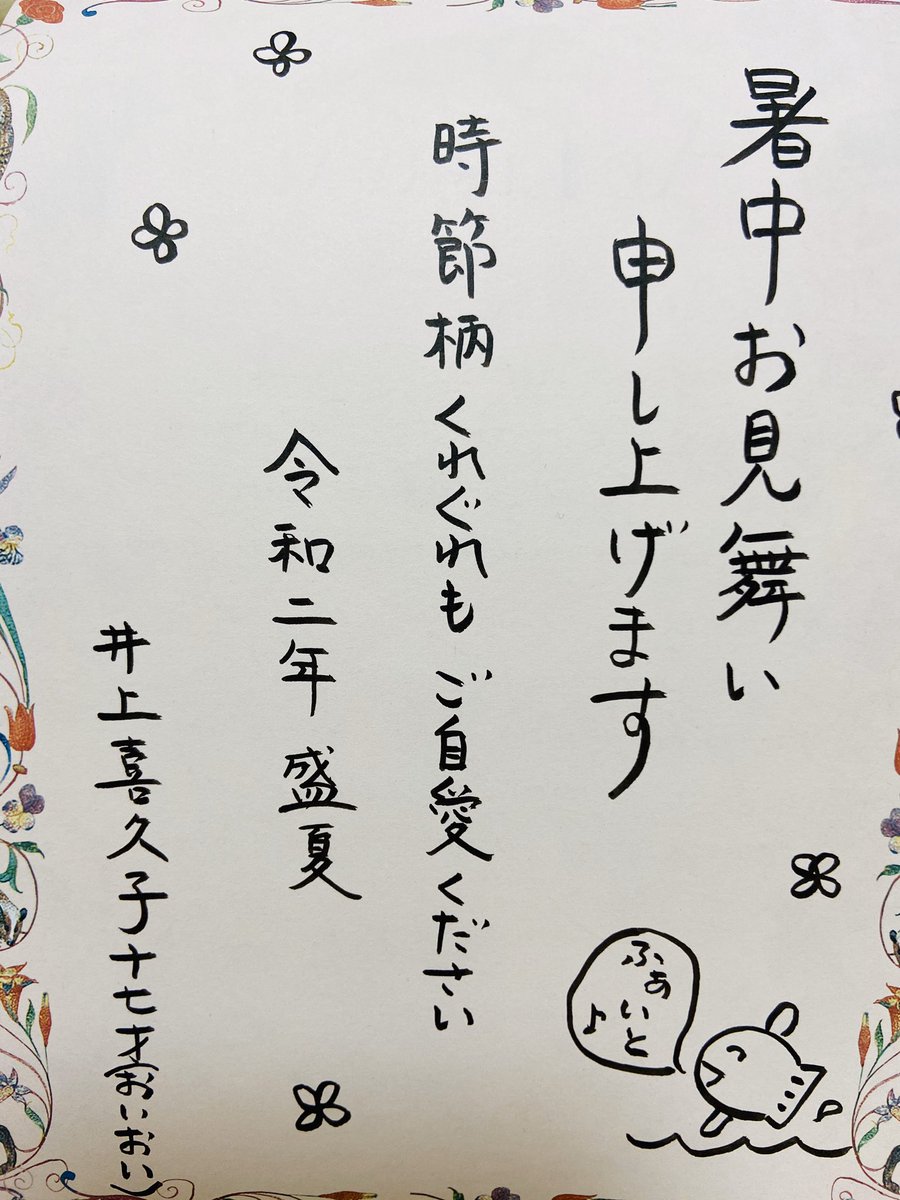 暑中お見舞い
申し上げます
時節柄くれぐれもご自愛ください
令和二年 盛夏
井上喜久子十七才(おいおい)
ふぁ
いと♪